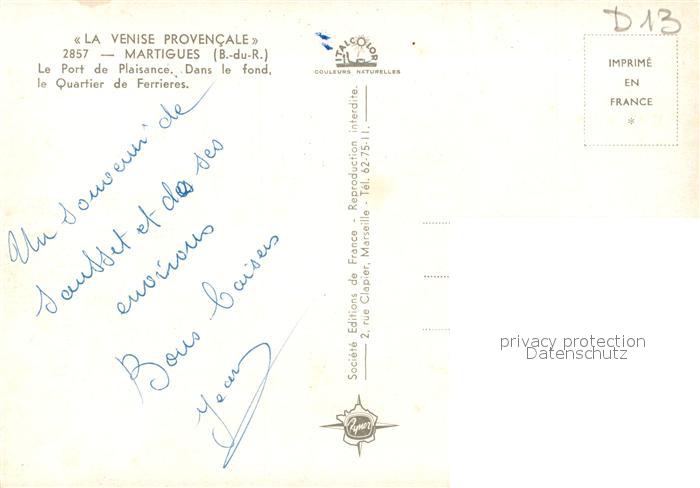 « LA VENISE PROVENÇALE »
2857 — MARTIGUES (B.-du-R.)
Le Port de Plaisance. Dans le fond,
le Quartier de Ferrieres.
Un souvenir de
Sausset et de ses
environs
Bons baisers
Jean
ITALCOLOR
COULEURS NATURELLES
Société Editions de France - Reproduction interdite.
2, rue Clapier, Marseille - Tél. 62-75-11.
Ryner
D13
IMPRIMÉ
EN
FRANCE
*
privacy protection
Datenschutz